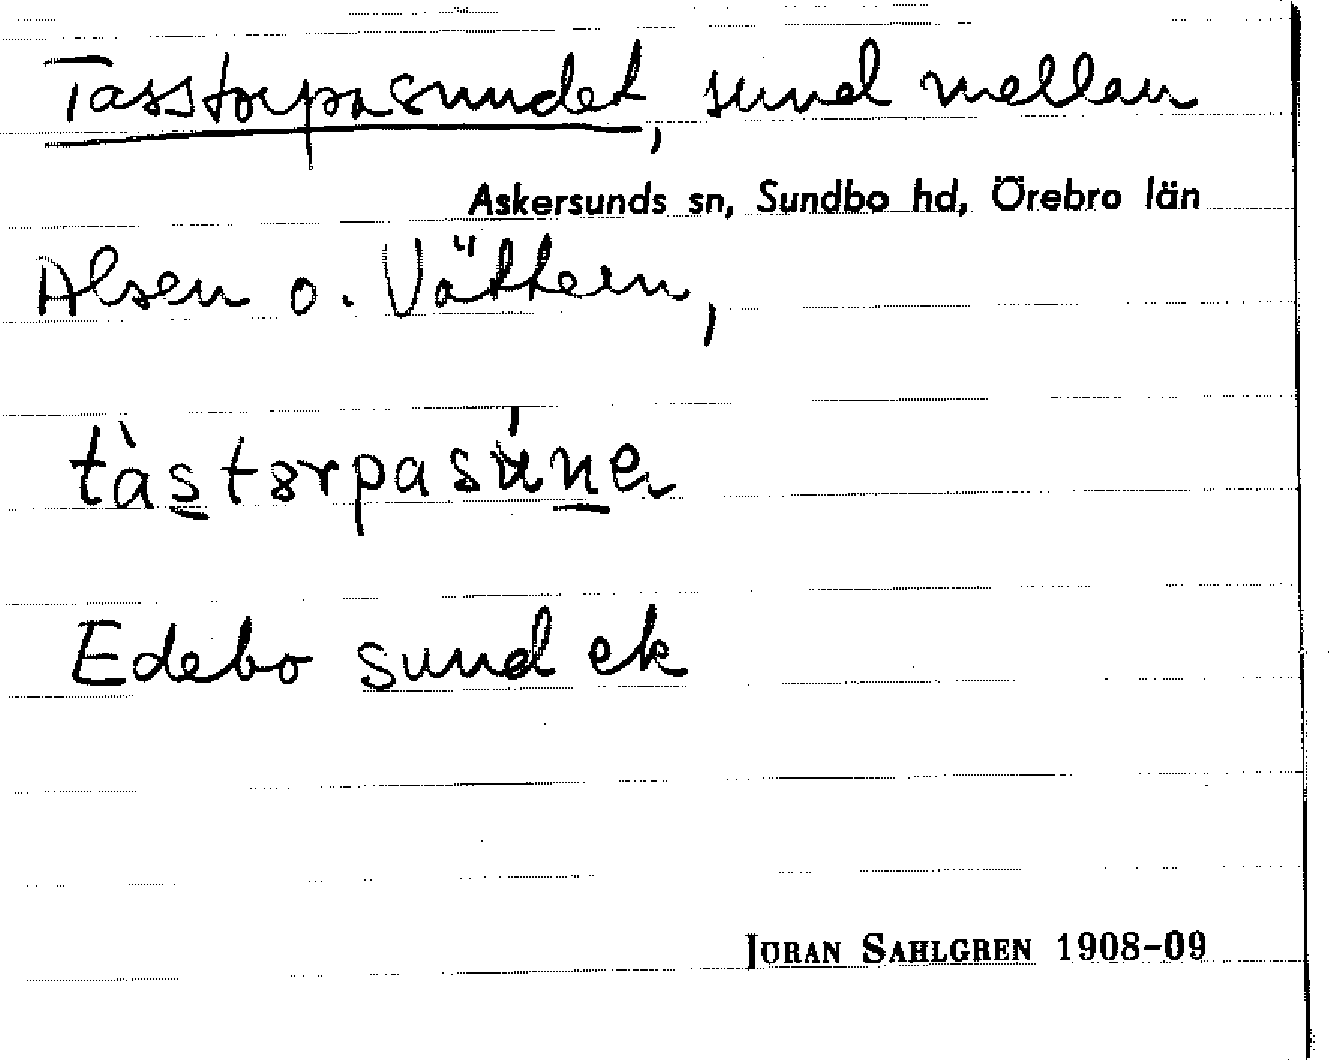 Tasstorpasundet, sund mellan
Askersunds sn, Sundbo hd, Örebro län
Alsen o. Vättern,
tàstorpasúne
Edebo sund ek
JÖRAN SAHLGREN 1908-09